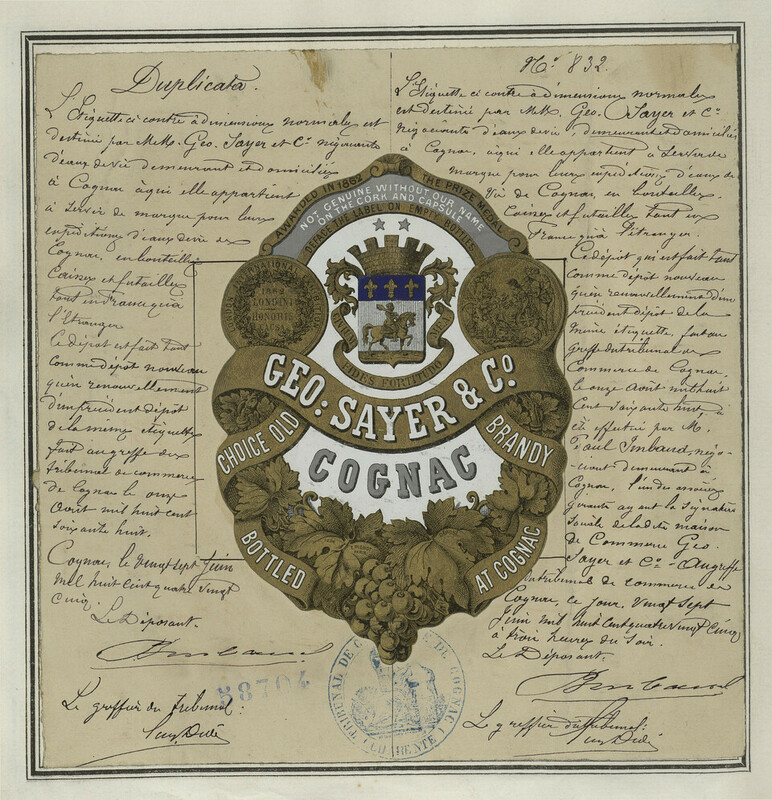 Duplicata.
L'Etiquette ci contre à dimensions normales est
destinée par M.M. Geo. Sayer et Cie négociants
d'eaux de vie demeurant et domiciliés
à Cognac à qui elle appartient
à servir de marque pour leurs
expéditions d'eaux de vie de
Cognac, en bouteilles
Caisses et futailles
tant en France qu'à
l'Etranger
Ce dépot est fait tant
comme dépot nouveau
qu'en renouvellement
d'un précédent dépot
de la même étiquette
fait au greffe du
tribunal de commerce
de Cognac le onze
Aout mil huit cent
soixante huit.
Cognac, le vingt sept Juin
mil huit cent quatre vingt
cinq.
Le Déposant.
Le greffier du Tribunal:
No. 832.
L'Etiquette ci contre à dimensions normales
est destinée par M.M. Geo. Sayer et Cie
négociants d'eaux de vie, demeurant et domiciliés
à Cognac, à qui elle appartient à servir de
marque pour leurs expéditions d'eaux de
vie de Cognac, en bouteilles,
Caisses et futailles tant en
France qu'à l'étranger.
Ce dépot qui est fait tant
comme dépot nouveau
qu'en renouvellement d'un
précédent dépot de la
même étiquette, fait au
greffe du tribunal de
Commerce de Cognac,
le onze Aout mil huit
Cent soixante huit, a
été effectué par M.
Paul Imbaud, négo-
ciant demeurant à
Cognac, l'un des associés
gérants ayant la signature
sociale de la dite maison
de Commerce Geo.
Sayer et Cie - Au greffe
du tribunal de commerce de
Cognac, ce jour vingt sept
Juin mil huit cent quatre vingt cinq
à trois heures du soir.
Le Déposant.
Le greffier du tribunal:
AWARDED IN 1862 THE PRIZE MEDAL
NOT GENUINE WITHOUT OUR NAME
ON THE CORK AND CAPSULE
DEFACE THE LABEL ON EMPTY BOTTLES
1862
LONDINI
HONORIS
CAUSA
FIDES FORTITUDO
GEO: SAYER & Co.
CHOICE OLD BRANDY
COGNAC
BOTTLED AT COGNAC
58704
TRIBUNAL DE COMMERCE DE COGNAC
(CHARENTE)